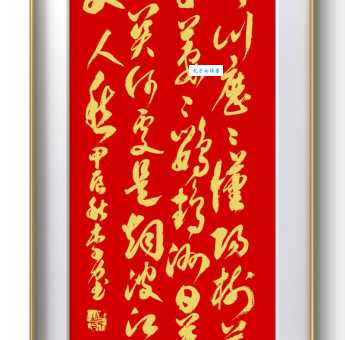 川歷々漢陽樹
萋々鸚鵡洲日暮
關何處是烟波江
人愁 甲辰秋